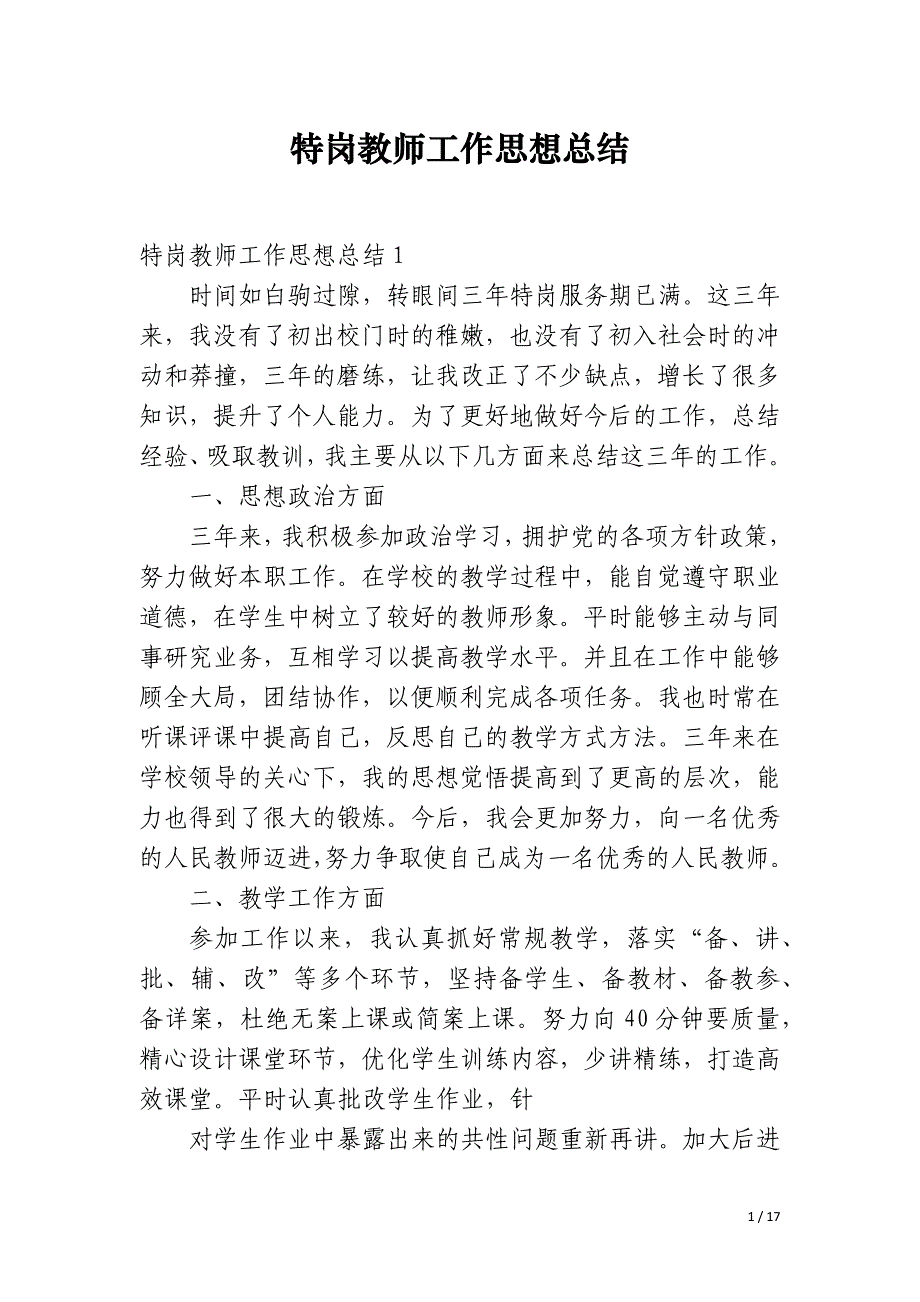 特岗教师工作思想总结
特岗教师工作思想总结1
时间如白驹过隙，转眼间三年特岗服务期已满。这三年
来，我没有了初出校门时的稚嫩，也没有了初入社会时的冲
动和莽撞，三年的磨练，让我改正了不少缺点，增长了很多
知识，提升了个人能力。为了更好地做好今后的工作，总结
经验、吸取教训，我主要从以下几方面来总结这三年的工作。
一、思想政治方面
三年来，我积极参加政治学习，拥护党的各项方针政策，
努力做好本职工作。在学校的教学过程中，能自觉遵守职业
道德，在学生中树立了较好的教师形象。平时能够主动与同
事研究业务，互相学习以提高教学水平。并且在工作中能够
顾全大局，团结协作，以便顺利完成各项任务。我也时常在
听课评课中提高自己，反思自己的教学方式方法。三年来在
学校领导的关心下，我的思想觉悟提高到了更高的层次，能
力也得到了很大的锻炼。今后，我会更加努力，向一名优秀
的人民教师迈进，努力争取使自己成为一名优秀的人民教师。
二、教学工作方面
参加工作以来，我认真抓好常规教学，落实“备、讲、
批、辅、改”等多个环节，坚持备学生、备教材、备教参、
备详案，杜绝无案上课或简案上课。努力向40分钟要质量，
精心设计课堂环节，优化学生训练内容，少讲精练，打造高
效课堂。平时认真批改学生作业，针
对学生作业中暴露出来的共性问题重新再讲。加大后进
1 / 17